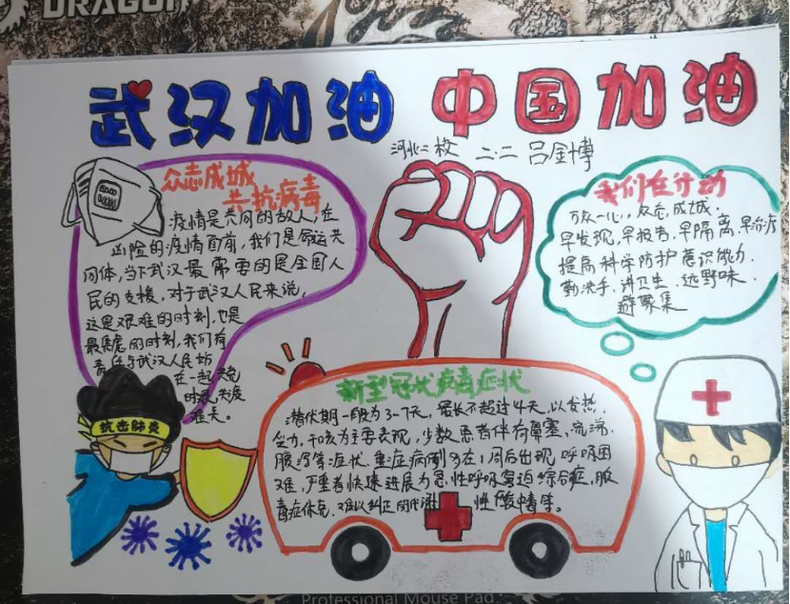 DRAGON
武汉加油 中国加油
河北二校 二.二 吕金博
众志成城
共抗病毒
疫情是共同的敌人,在
凶险的疫情面前,我们是命运共
同体,当下武汉最需要的是全国人
民的支援,对于武汉人民来说,
这是艰难的时刻,也是
最焦虑的时刻,我们有
责任与武汉人民站
在一起共克
时艰,共度
难关。
我们在行动
万众一心,众志成城。
早发现,早报告,早隔离,早治疗
提高科学防护意识能力
勤洗手、讲卫生、远野味、
避聚集
抗击肺炎
新型冠状病毒症状
潜伏期一般为3-7天,最长不超过14天,以发热,
乏力,干咳为主要表现,少数患者伴有鼻塞、流涕、
腹泻等症状、重症病例多在1周后出现呼吸困
难,严重者快速进展为急性呼吸窘迫综合症,脓
毒症休克,难以纠正的代谢性酸中毒等。
N95
Professional Mouse Pad